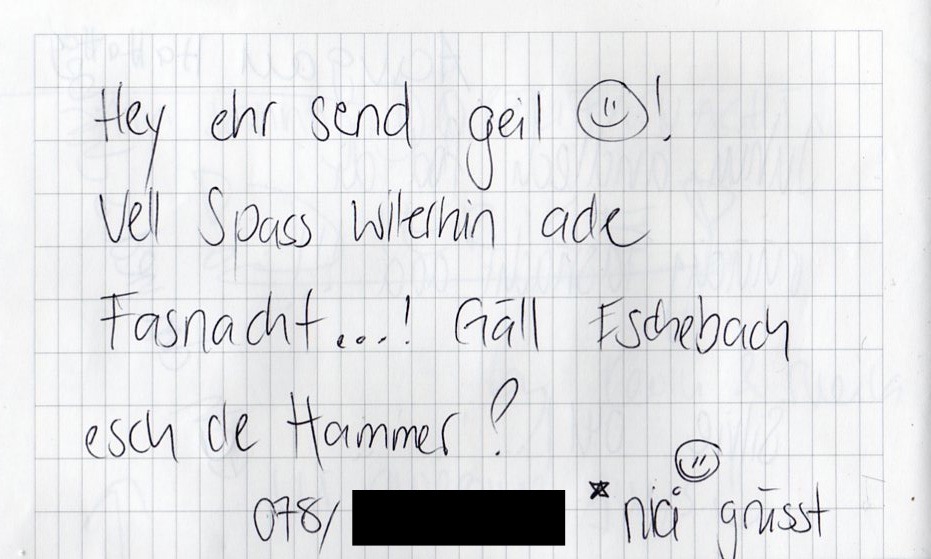 Hey ehr send geil ☺!
Vell Spass witerhin ade
Fasnacht...! Gäll Eschebach
esch de Hammer?
078/ *nici grüsst